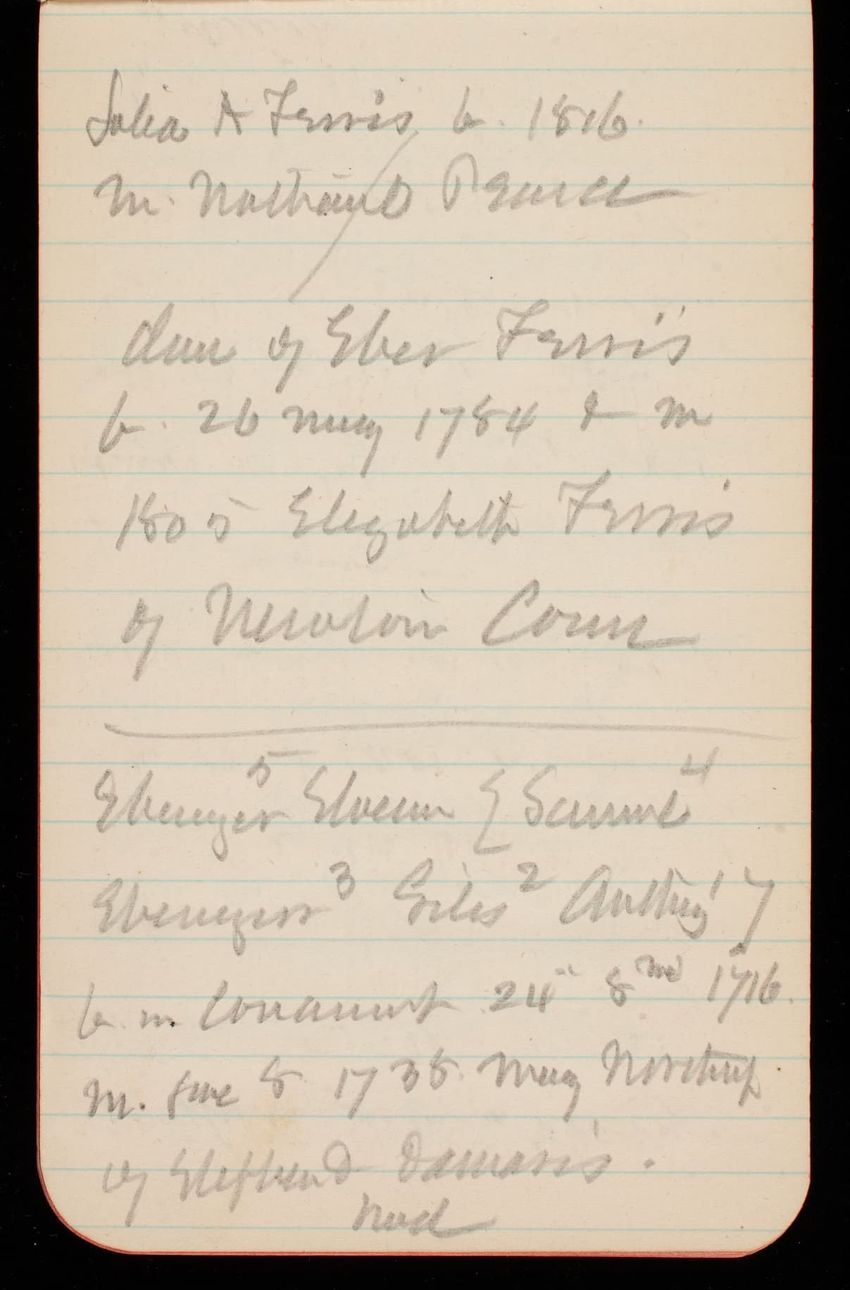 Julia A Ferris b. 1816.
m. Nathan D Pearce
dau of Eber Ferris
b. 26 may 1784 & m
1805 Elizabeth Ferris
of Newtown Conn
Ebenezer⁵ Slocum { Samuel⁴
Ebenezer³ Giles² Anthy¹ }
b. in Conanicut 24" 8mo 1716.
m. June 8 1738 mary Northup
of Stephen & Damaris.
had